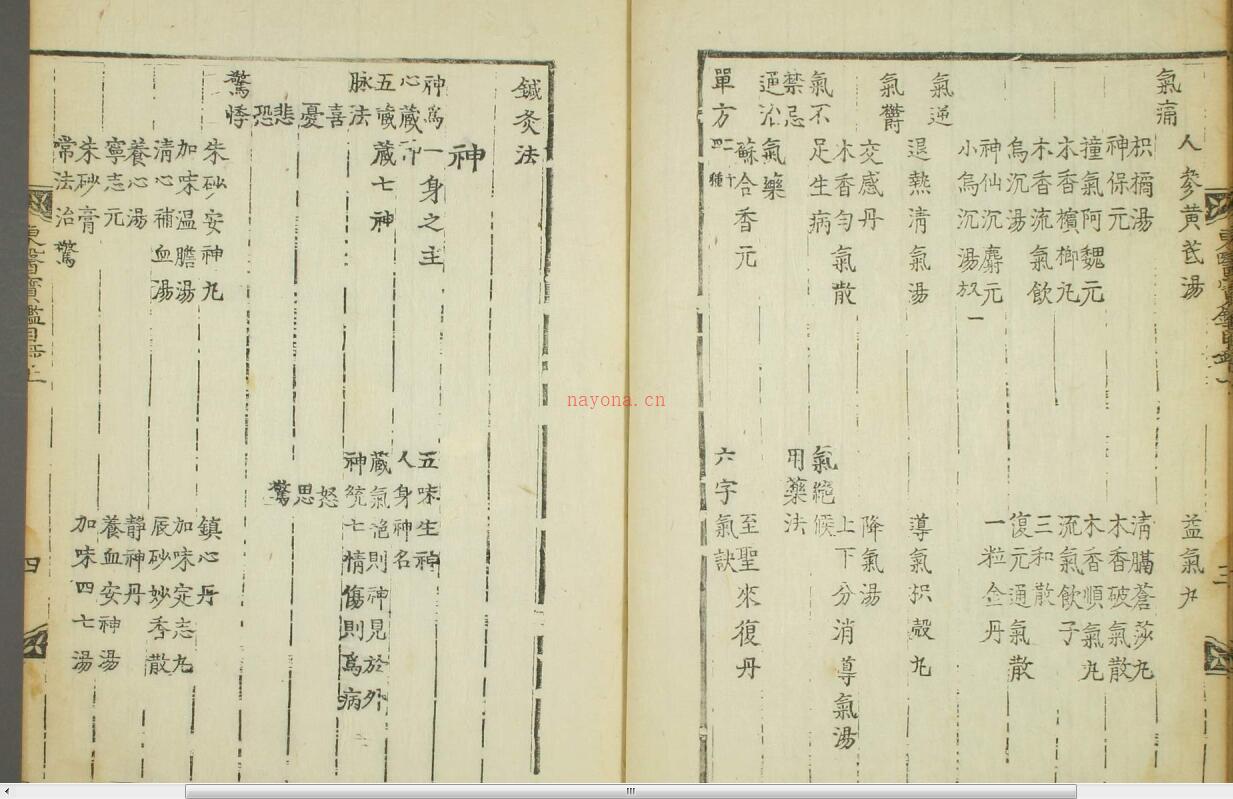 人參黃芪湯　益氣丸
氣痛
枳橘湯　淸膈蒼莎丸
神保元　木香破氣散
撞氣阿魏元　木香順氣丸
木香檳榔丸　流氣飮子
木香流氣飮　三和散
烏沉湯　復元通氣散
神仙沉麝元　一粒金丹
小烏沉湯 放一
氣逆
退熱淸氣湯　導氣枳殼丸
氣鬱
交感丹　降氣湯
木香勻氣散　上下分消導氣湯
氣不足生病　氣絶候
禁忌　用藥法
通治氣藥
蘇合香元　至聖來復丹
單方 二十四種　六字氣訣
三
鍼灸法
神
神爲一身之主　五味生神
心藏神　人身神名
五藏藏七神　藏氣絶則神見於外
脉法　神統七情傷則爲病
喜　怒
憂　思
悲　驚
恐
驚悸
朱砂安神丸　鎮心丹
加味温膽湯　加味定志丸
淸心補血湯　辰砂妙香散
養心湯　靜神丹
寧志元　養血安神湯
朱砂膏　加味四七湯
常法治驚
東醫寶鑑目錄上
四
nayona.cn